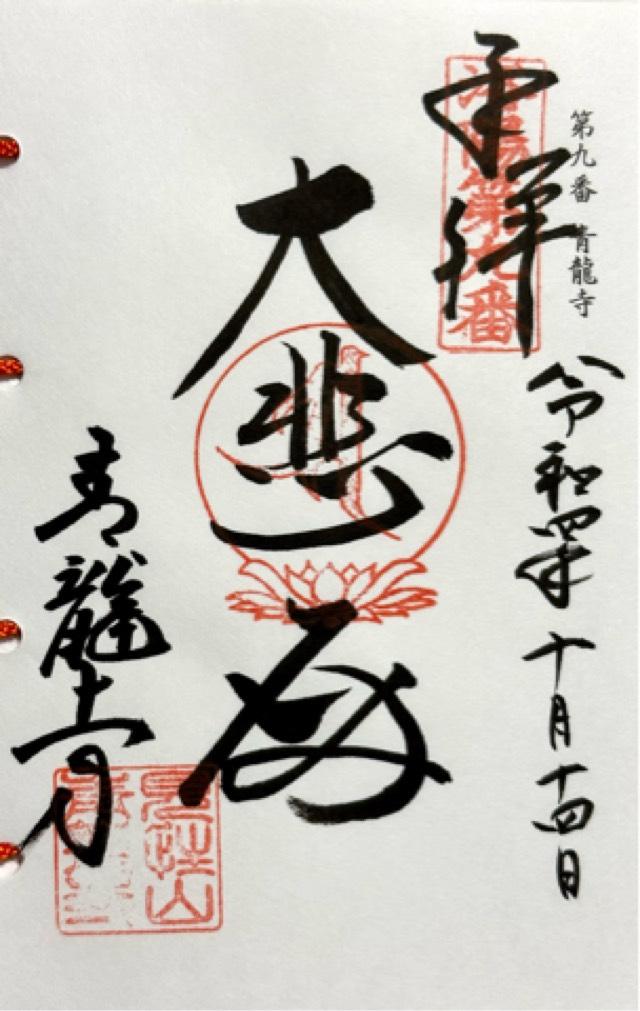 第九番 青龍寺
奉拝
洛陽第九番
令和四年十月十四日
大悲殿
青龍寺
見性山